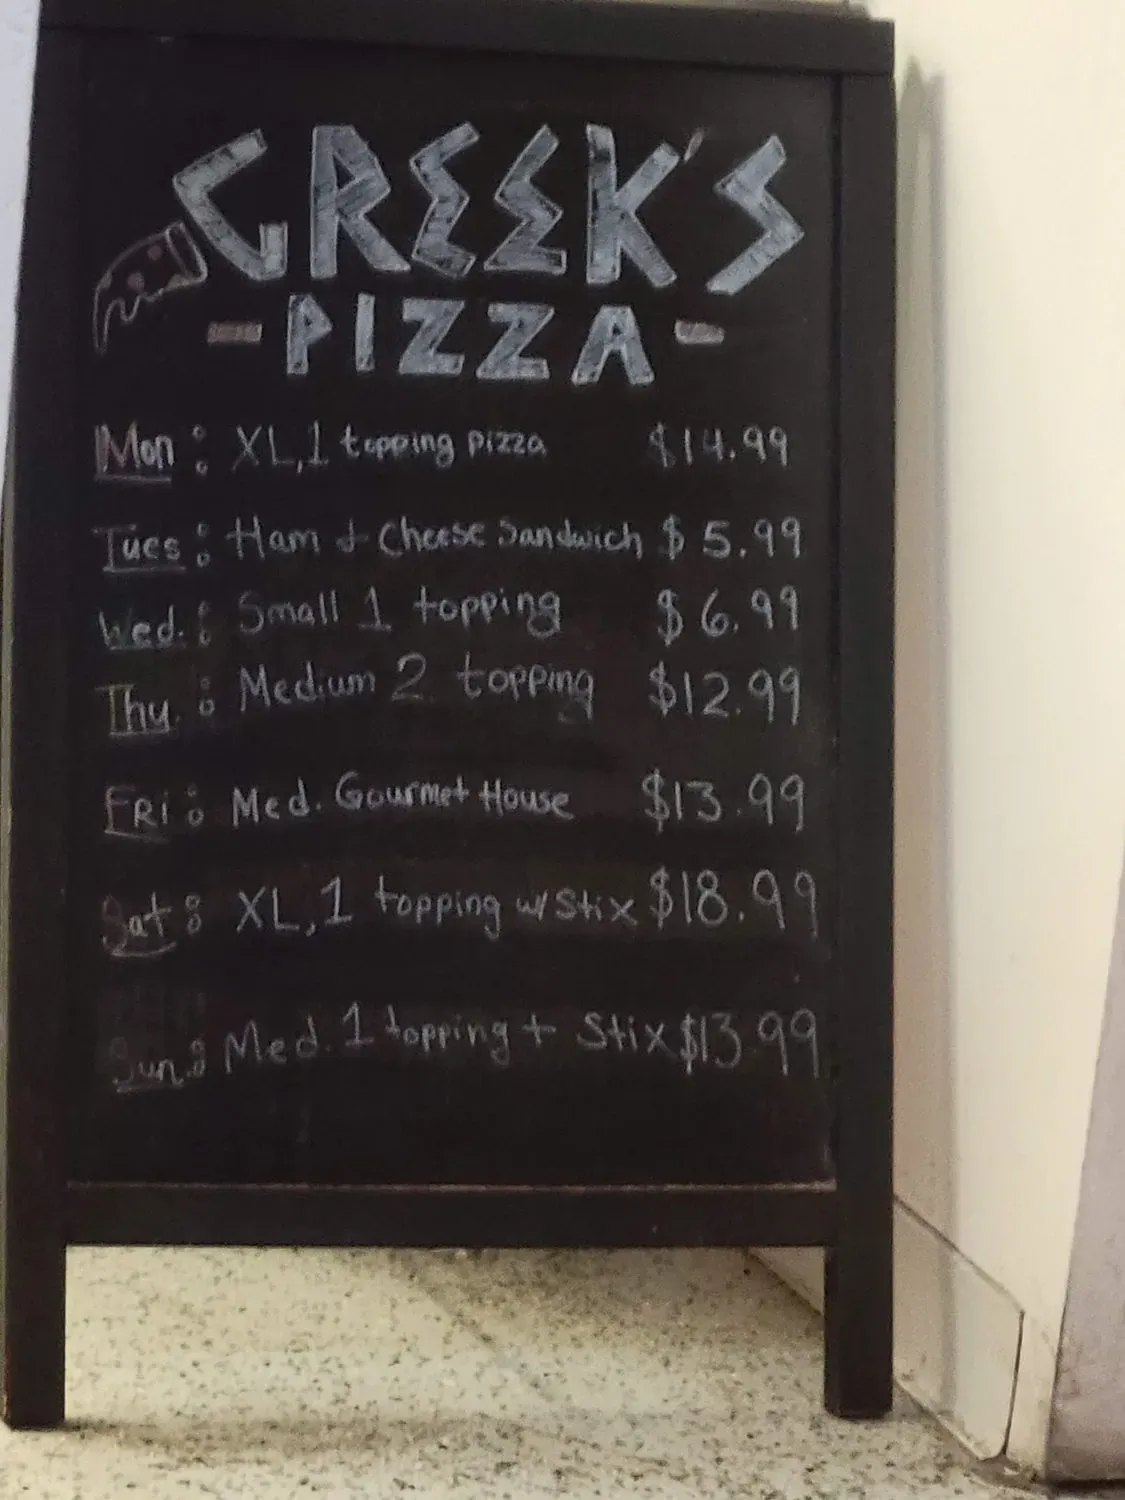 GREEK'S
- PIZZA -
Mon: XL, 1 topping pizza $14.99
Tues: Ham + Cheese Sandwich $5.99
Wed.: Small 1 topping $6.99
Thu.: Medium 2 topping $12.99
FRi: Med. Gourmet House $13.99
Sat: XL, 1 topping w/ Stix $18.99
Sun.: Med. 1 topping + Stix $13.99